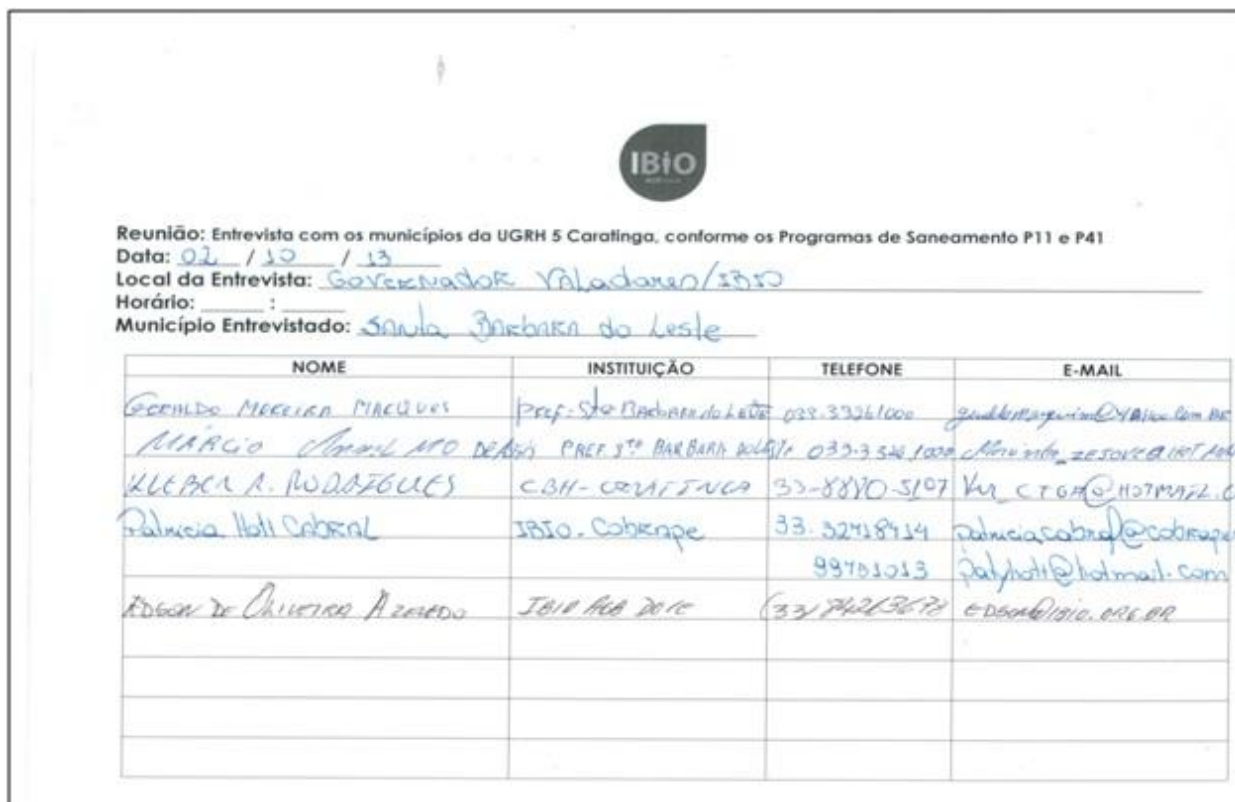 IBiO
Reunião: Entrevista com os municípios da UGRH 5 Caratinga, conforme os Programas de Saneamento P11 e P41
Data: 02 / 10 / 13
Local da Entrevista: Governador Valadares/IBIO
Horário: ____ : ____
Município Entrevistado: Santa Barbara do Leste
NOME INSTITUIÇÃO TELEFONE E-MAIL
Geraldo Moreira Marques Pref. Sta Barbara do Leste 033.33261000
MÁRCIO PREF STª BARBARA DO LESTE 033-3326 1000
KLEBER R. RODRIGUES CBH-CARATINGA 33-8880-5107
Patricia Hott CABRAL IBIO. Cobrape 33. 32718414
99701013 patyhott@hotmail.com
EDSON DE OLIVEIRA AZEVEDO IBIO AGB DOCE EDSON@IBIO.ORG.BR